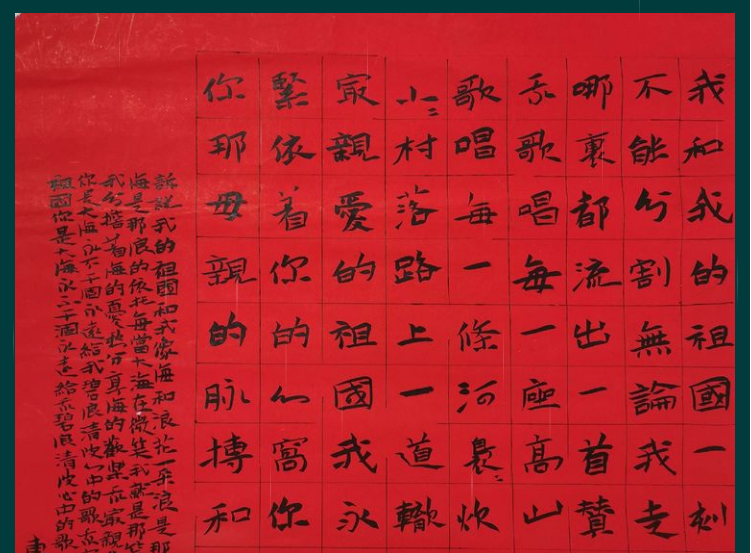 我和我的祖國一刻
不能分割無論我走
哪裏都流出一首贊
我歌唱每一座高山
歌唱每一條河裊〻炊
小〻村落路上一道轍
最親愛的祖國我永
緊依着你的心窩你
你那母親的脉搏和
訴説我的祖國和我像海和浪花一朵浪是那
海是那浪的依托每當大海在微笑我就是那笑
我分擔着海的憂愁分享海的歡樂我最親
你是大海永不干涸永遠給我碧浪清波心中的歌我
祖國你是大海永不干涸永遠給我碧浪清波心中的歌